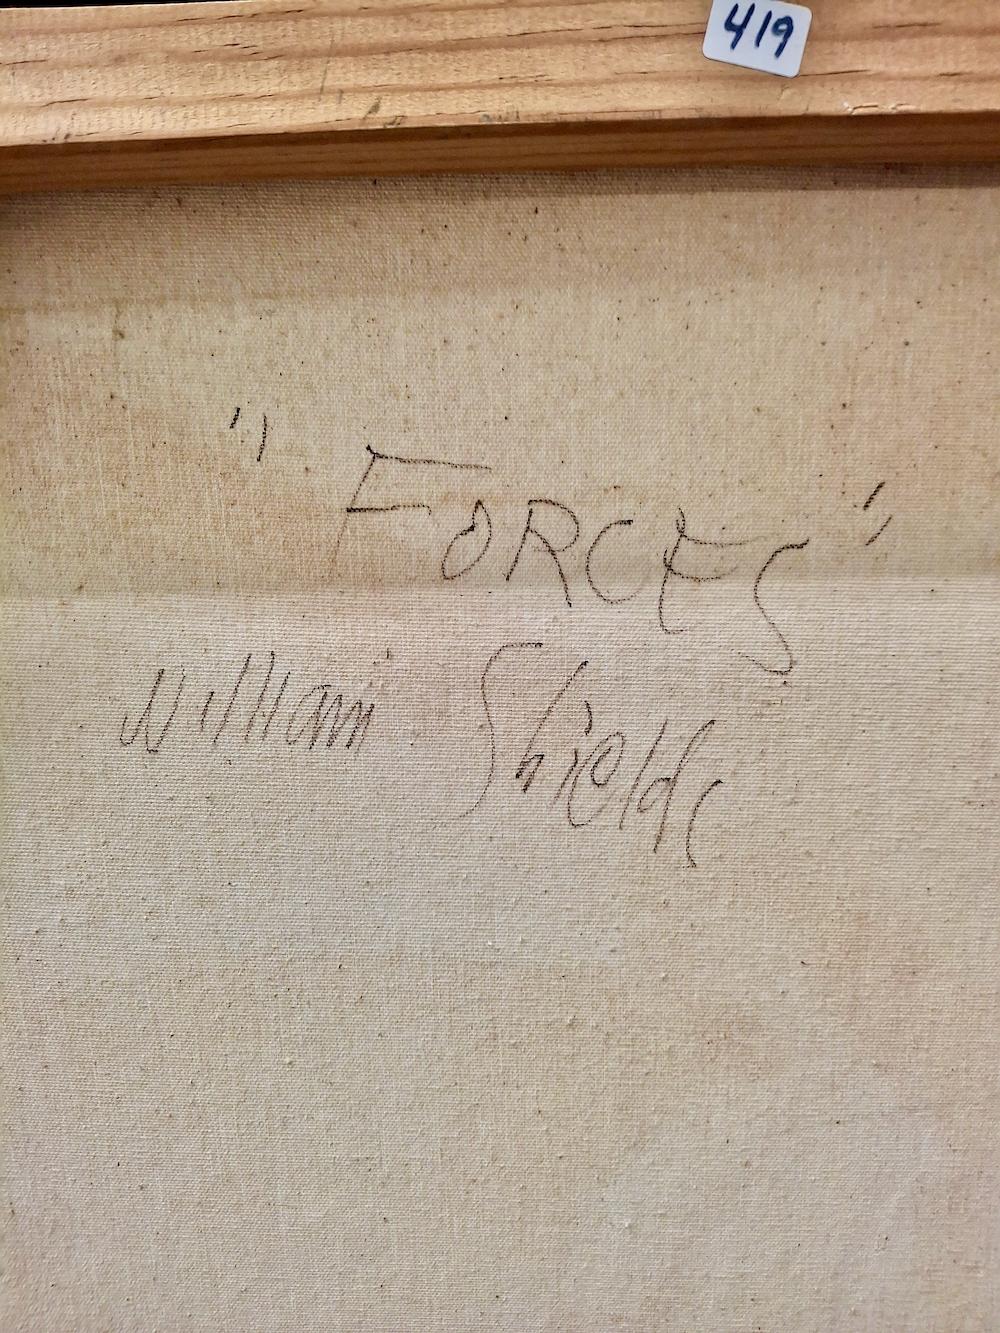 419
"FORCES"
William Shields